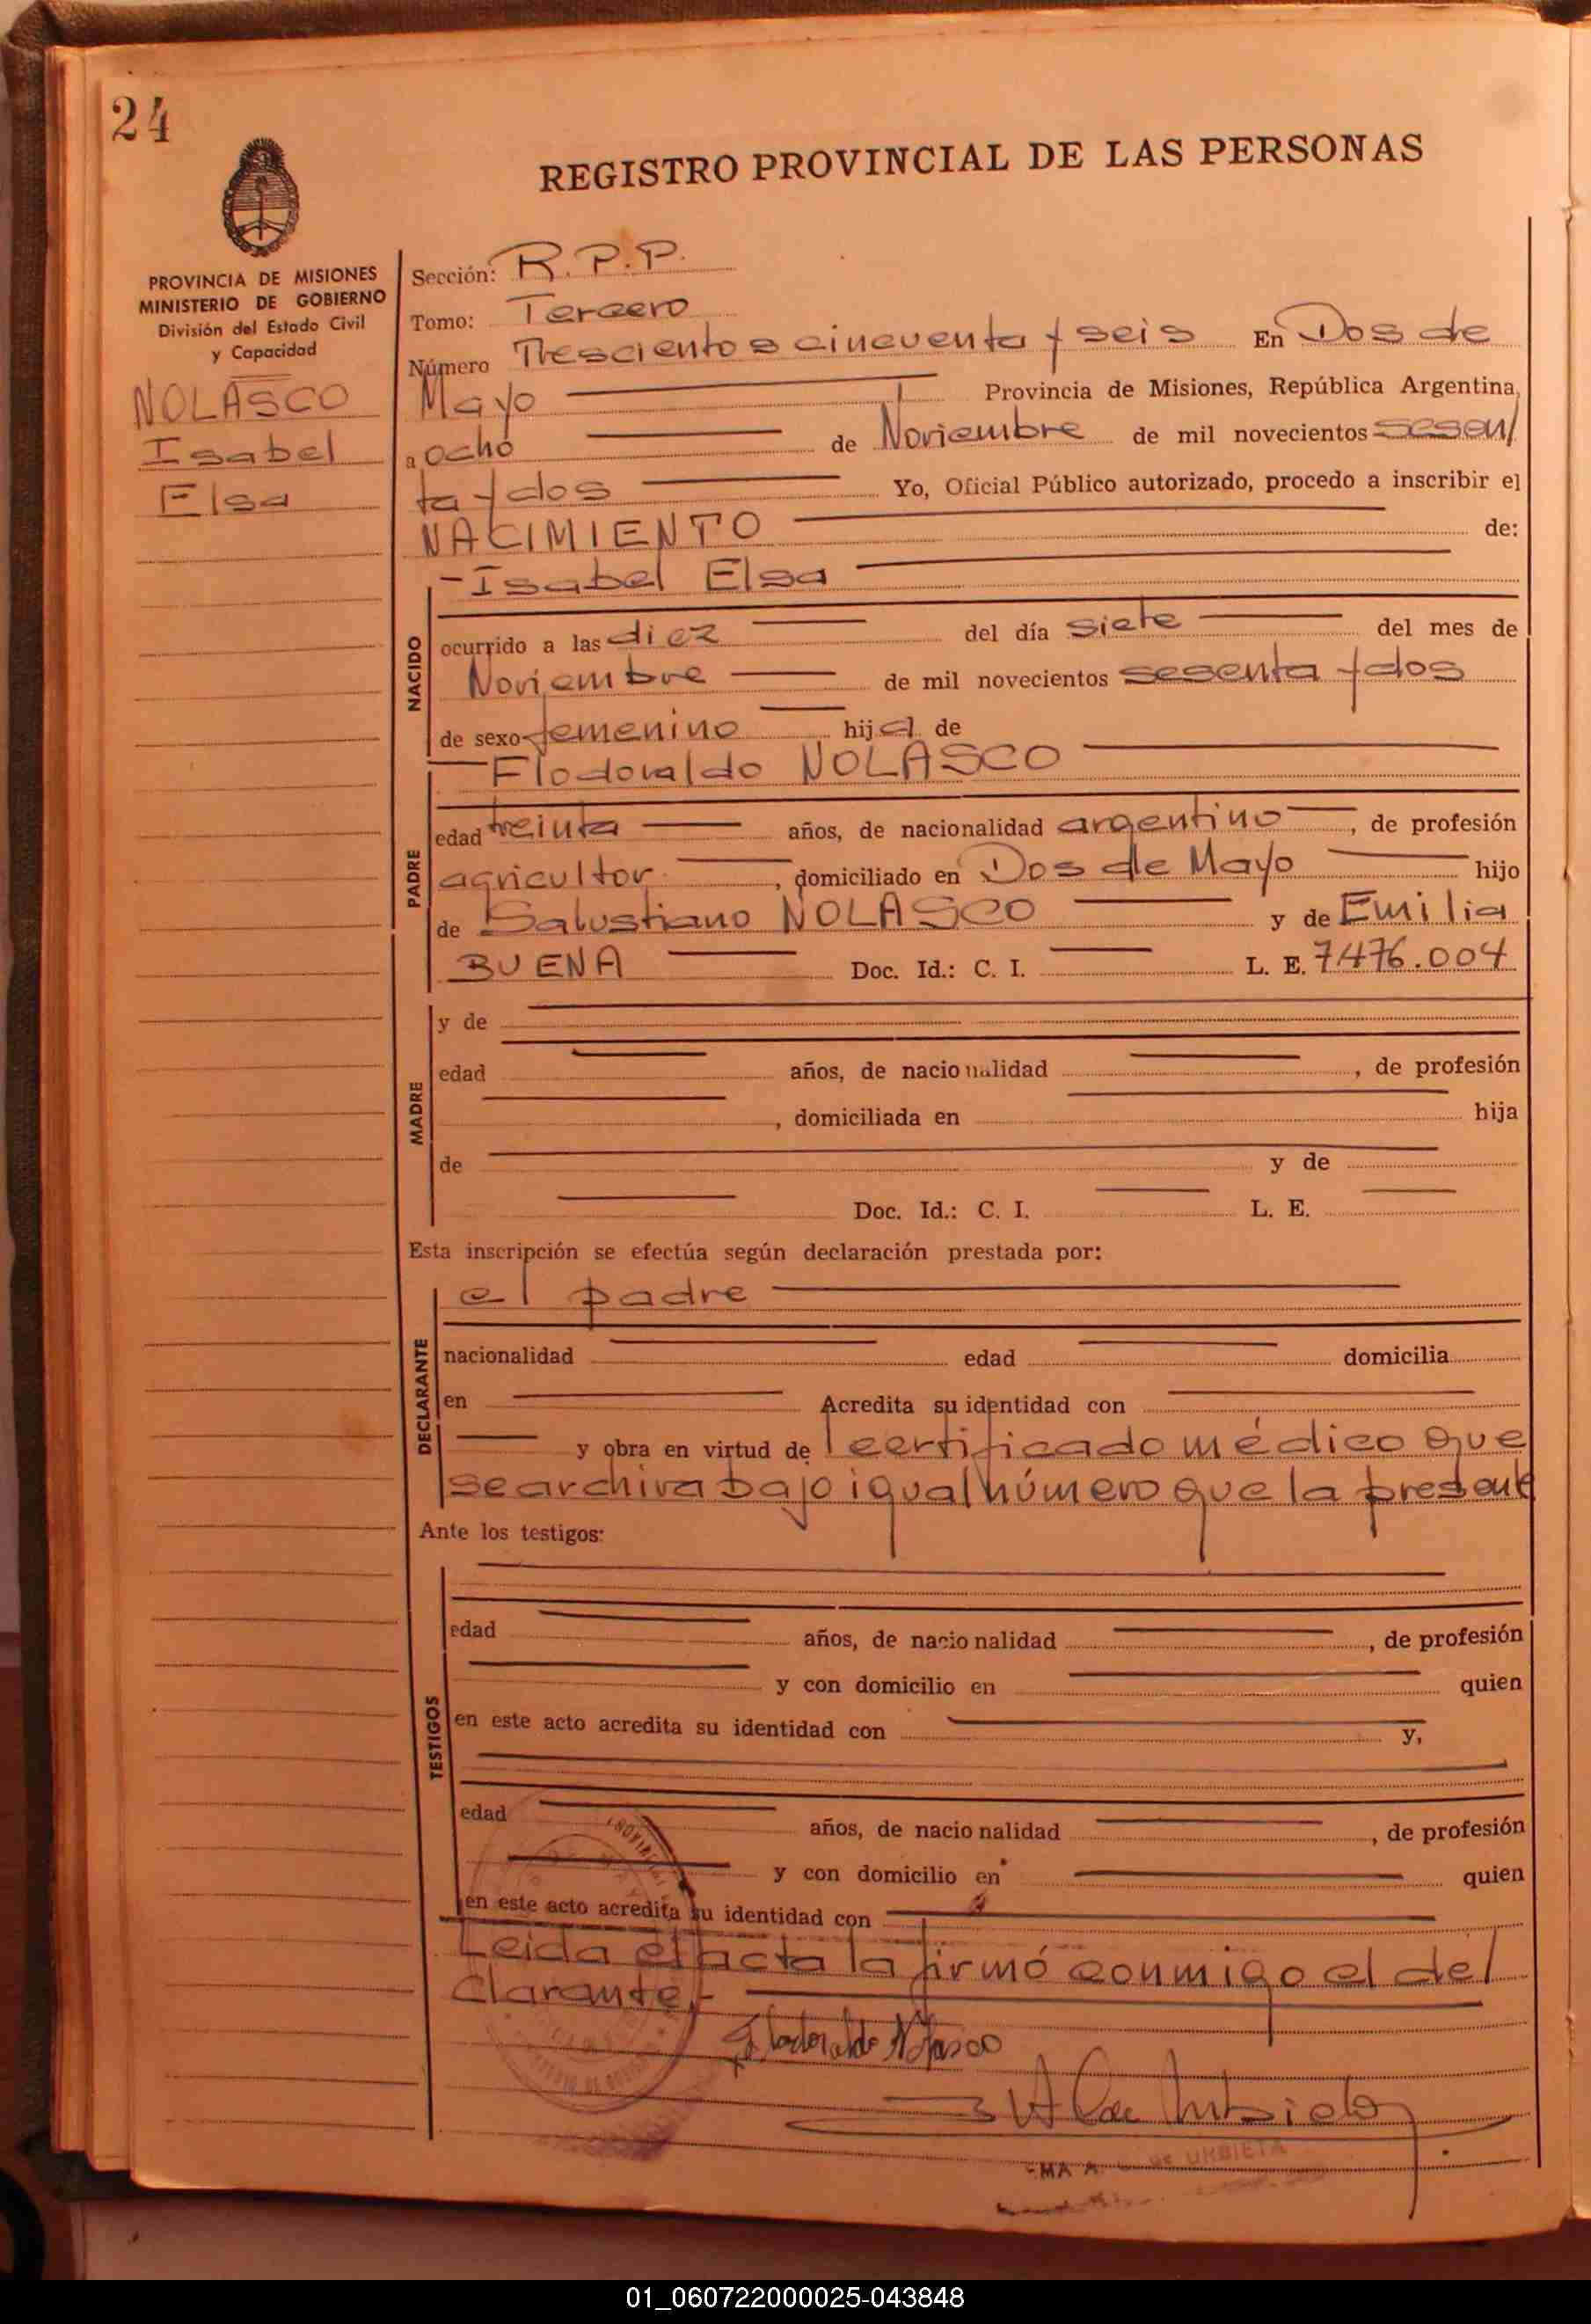 24
REGISTRO PROVINCIAL DE LAS PERSONAS
PROVINCIA DE MISIONES
MINISTERIO DE GOBIERNO
División del Estado Civil
y Capacidad
NOLASCO
Isabel
Elsa
Sección: R.P.P.
Tomo: Tercero
Número Trescientos cincuenta y seis En Dos de
Mayo Provincia de Misiones, República Argentina,
a ocho de Noviembre de mil novecientos sesen/
ta y dos Yo, Oficial Público autorizado, procedo a inscribir el
NACIMIENTO de:
NACIDO
-Isabel Elsa
ocurrido a las diez del día siete del mes de
Noviembre de mil novecientos sesenta y dos
de sexo femenino hija de
PADRE
Flodoraldo NOLASCO
edad treinta años, de nacionalidad argentino, de profesión
agricultor, domiciliado en Dos de Mayo hijo
de Salustiano NOLASCO y de Emilia
BUENA Doc. Id.: C. I. L. E. 7476.004
MADRE
y de
edad años, de nacionalidad , de profesión
, domiciliada en hija
de y de
Doc. Id.: C. I. L. E.
Esta inscripción se efectúa según declaración prestada por:
DECLARANTE
el padre
nacionalidad edad domicilia
en Acredita su identidad con
y obra en virtud de l certificado médico que
se archiva bajo igual número que la presente
Ante los testigos:
TESTIGOS
edad años, de nacio nalidad , de profesión
y con domicilio en quien
en este acto acredita su identidad con y,
edad años, de nacio nalidad , de profesión
y con domicilio en quien
en este acto acredita su identidad con
Leida el acta la firmó conmigo el de/
clarante.-
Flodoraldo Nolasco
DE URBIETA
01_060722000025-043848